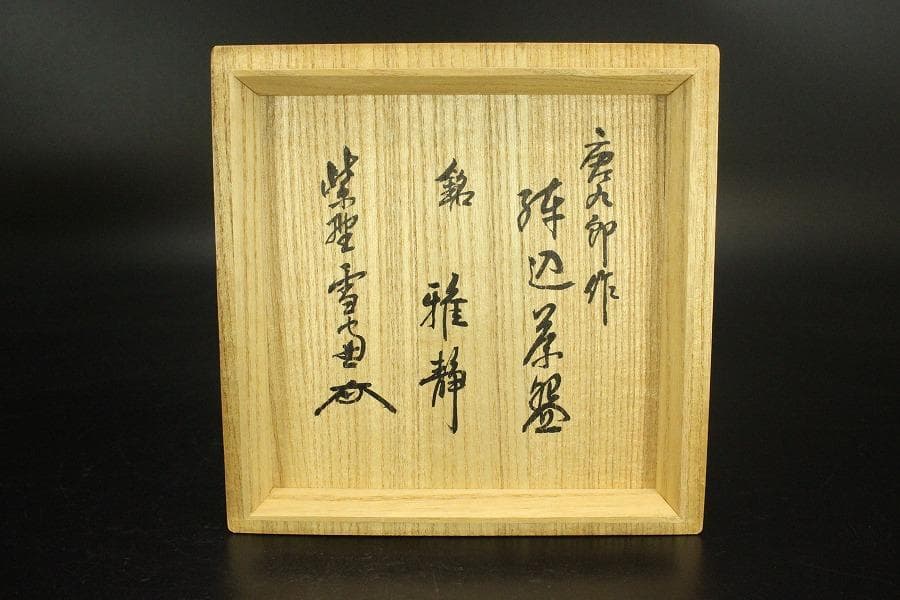 唐九郎作
練込茶盌
銘 雅静
紫野雪